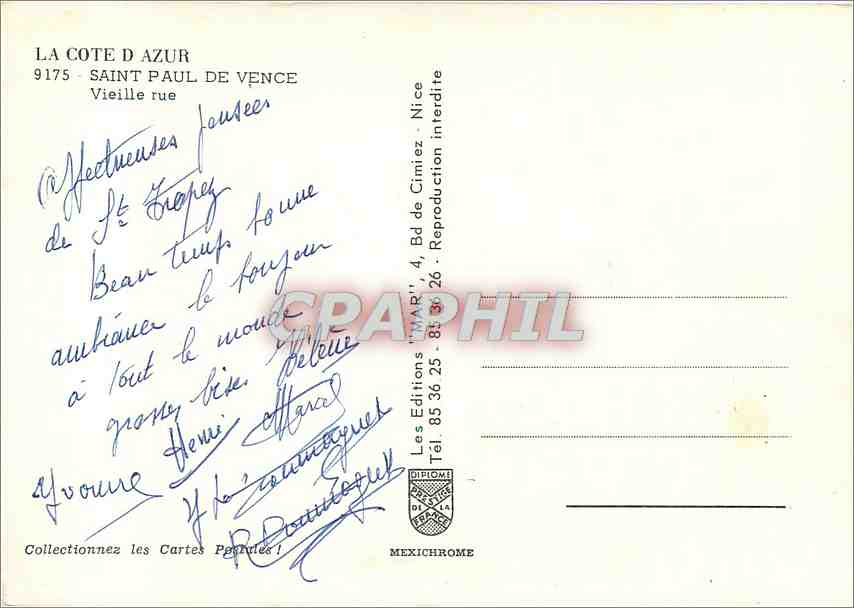 LA COTE D AZUR
9175 - SAINT PAUL DE VENCE
Vieille rue
Affectueuses pensées
de St Tropez
Beau temps bonne
ambiance le bonjour
à tout le monde
grosses bises Hélène
Yvonne Henri Marcel
Collectionnez les Cartes Postales !
Les Editions "MAR", 4, Bd de Cimiez - Nice
Tél. 85 36 25 - 85 36 26 - Reproduction interdite
CPAPHIL
DIPLOME
PRESTIGE
DE LA
FRANCE
MEXICHROME